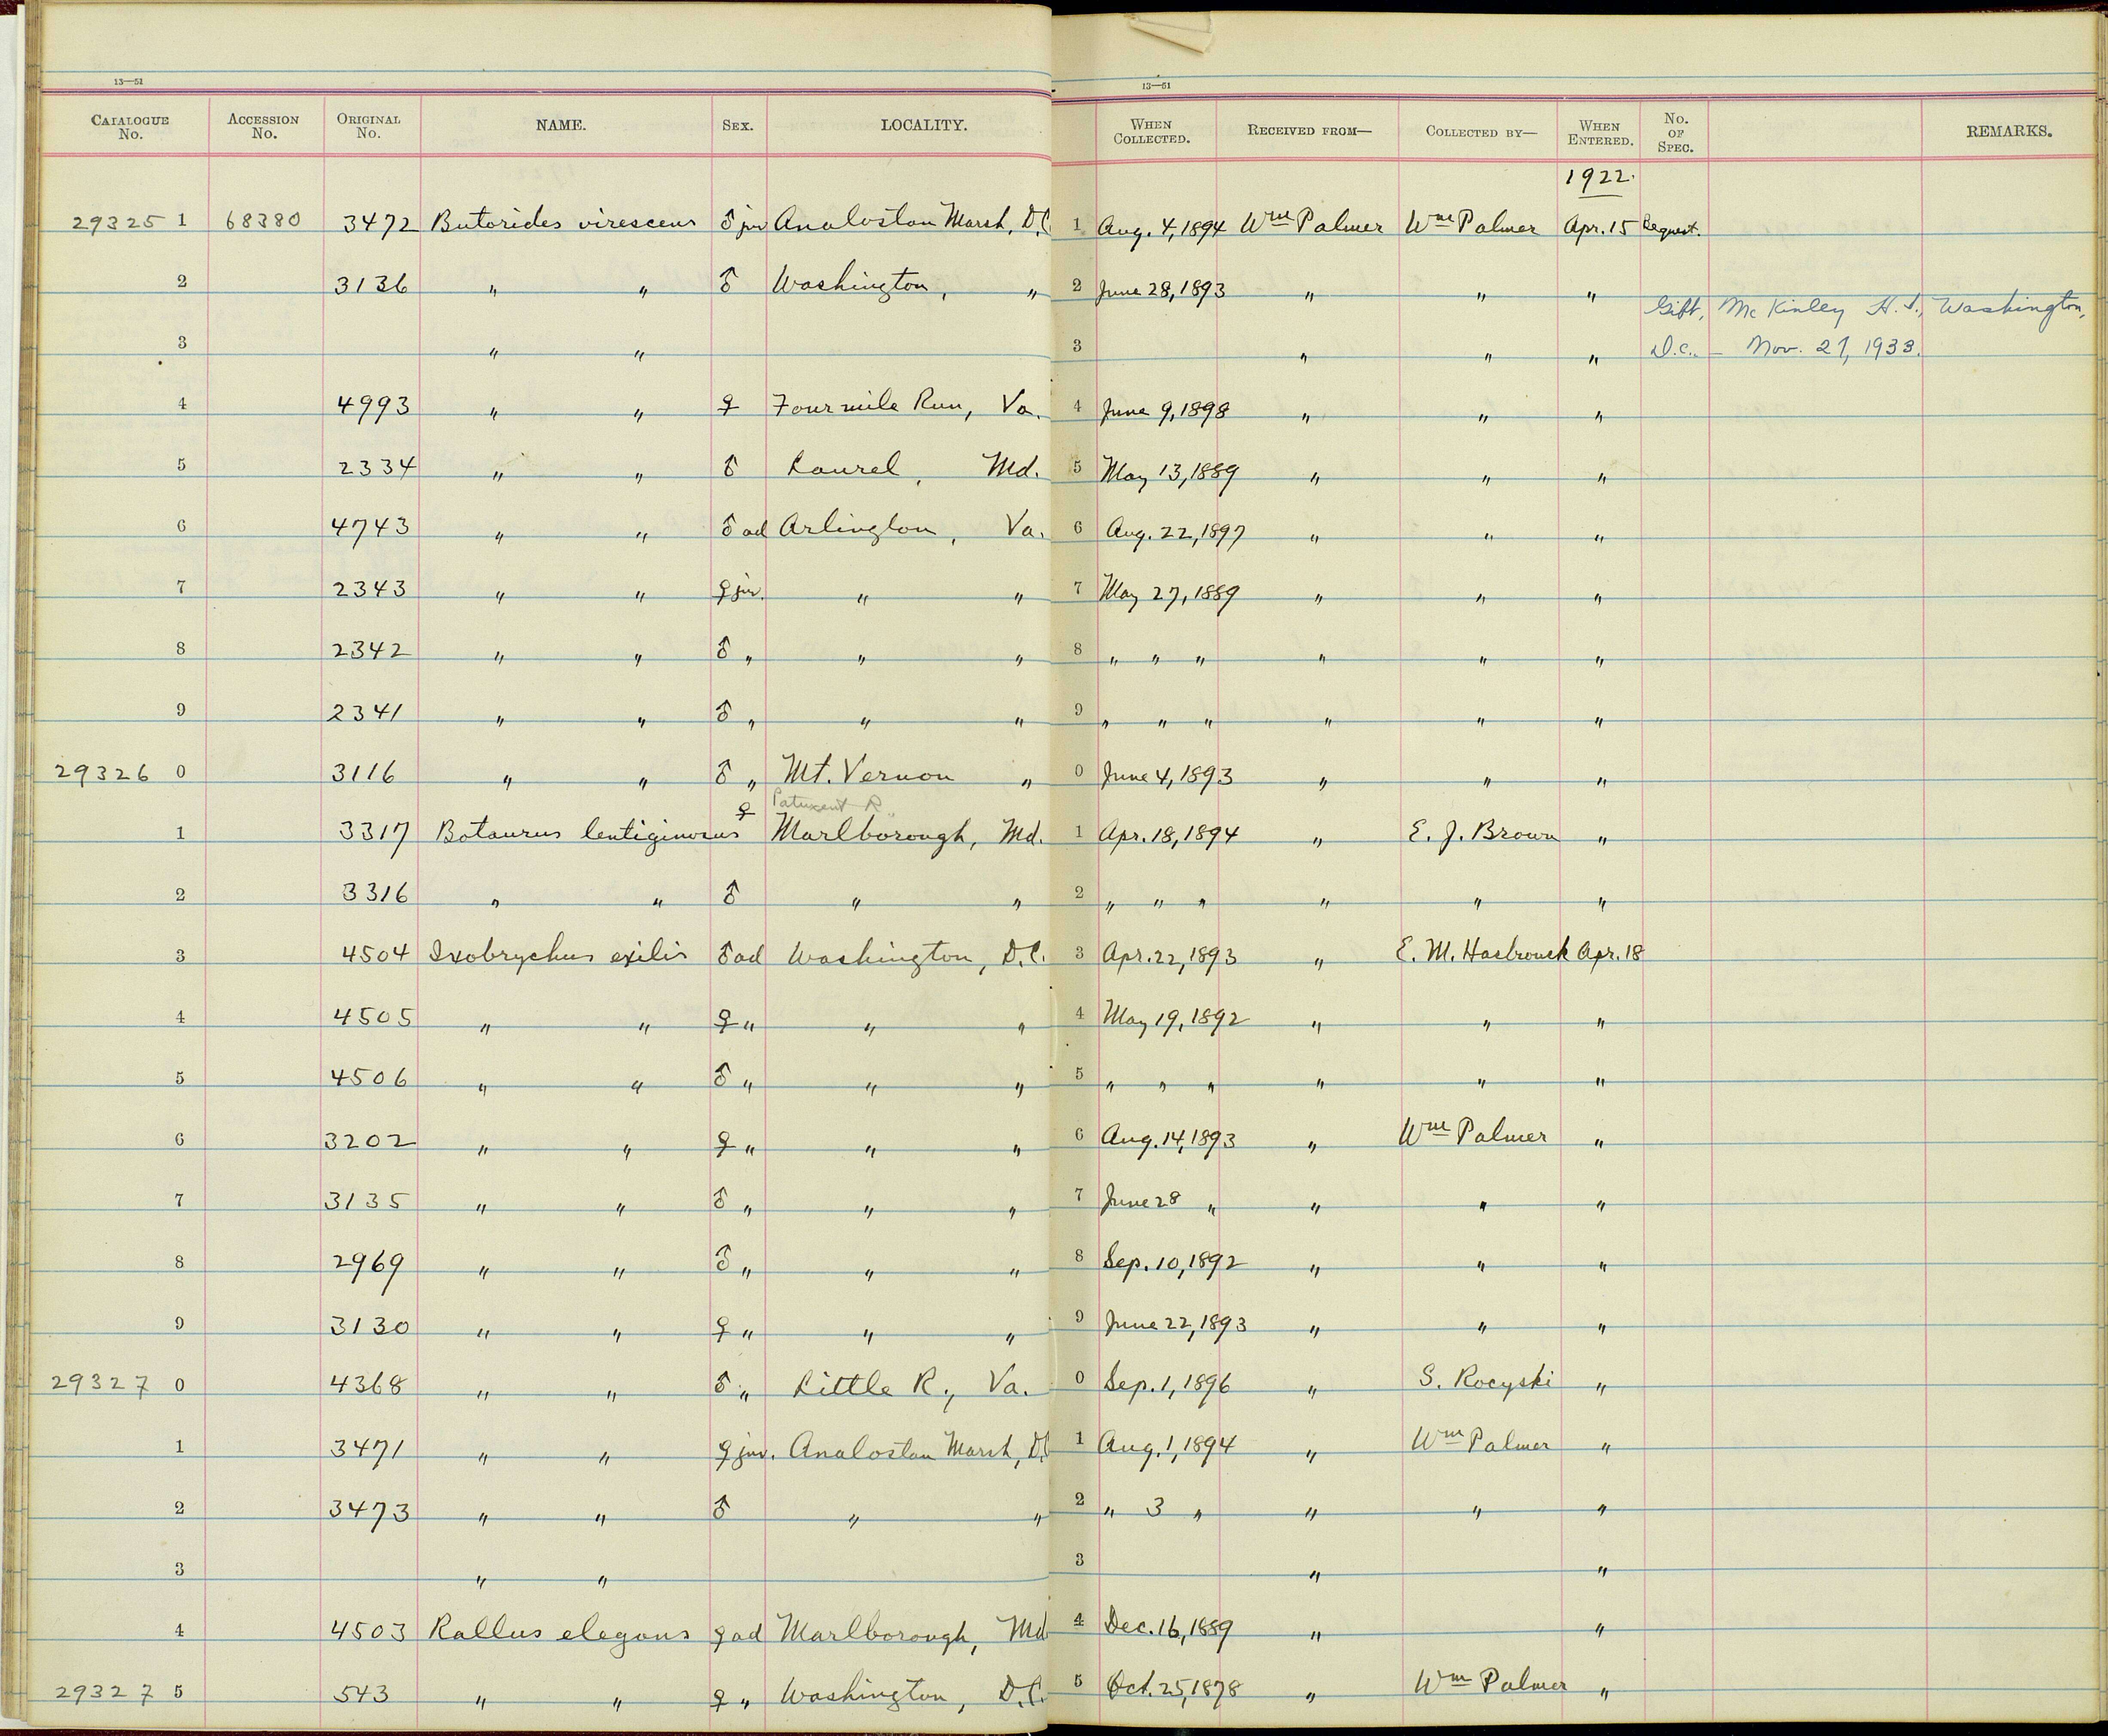 13—51 13—51
CATALOGUE No. ACCESSION No. ORIGINAL No. NAME. SEX. LOCALITY. WHEN COLLECTED. RECEIVED FROM— COLLECTED BY— WHEN ENTERED. No. OF SPEC. REMARKS.
1922.
29325 1 68380 3472 Butorides virescens ♂ juv Analostan Marsh, D.C. 1 Aug. 4, 1894 Wm Palmer Wm Palmer Apr. 15 Bequest.
2 3136 " " ♂ Washington, " 2 June 28, 1893 " " "
Gift, McKinley H.S., Washington,
3 " " 3 " " " D.C. — Nov. 27, 1933.
4 4993 " " ♀ Fourmile Run, Va. 4 June 9, 1898 " " "
5 2334 " " ♂ Laurel, Md. 5 May 13, 1889 " " "
6 4743 " " ♂ ad Arlington, Va. 6 Aug. 22, 1897 " " "
7 2343 " " ♀ juv. " " 7 May 27, 1889 " " "
8 2342 " " ♂ " " " 8 " " " " " "
9 2341 " " ♂ " " " 9 " " " " " "
29326 0 3116 " " ♂ " Mt. Vernon " 0 June 4, 1893 " " "
Patuxent R.
1 3317 Botaurus lentiginosus ♀ Marlborough, Md. 1 Apr. 18, 1894 " E. J. Brown "
2 3316 " " ♂ " " 2 " " " " " "
3 4504 Ixobrychus exilis ♂ ad Washington, D.C. 3 Apr. 22, 1893 " E. M. Hasbrouck Apr. 18
4 4505 " " ♀ " " " 4 May 19, 1892 " " "
5 4506 " " ♂ " " " 5 " " " " " "
6 3202 " " ♀ " " " 6 Aug. 14, 1893 " Wm Palmer "
7 3135 " " ♂ " " " 7 June 28 " " " "
8 2969 " " ♂ " " " 8 Sep. 10, 1892 " " "
9 3130 " " ♀ " " " 9 June 22, 1893 " " "
29327 0 4368 " " ♂ " Little R., Va. 0 Sep. 1, 1896 " S. Rocyski "
1 3471 " " ♀ juv. Analostan Marsh, D.C. 1 Aug. 1, 1894 " Wm Palmer "
2 3473 " " ♂ " " 2 " 3 " " " "
3 " " 3 " "
4 4503 Rallus elegans ♀ ad Marlborough, Md 4 Dec. 16, 1889 " "
29327 5 543 " " ♀ " Washington, D.C. 5 Oct. 25, 1878 " Wm Palmer "